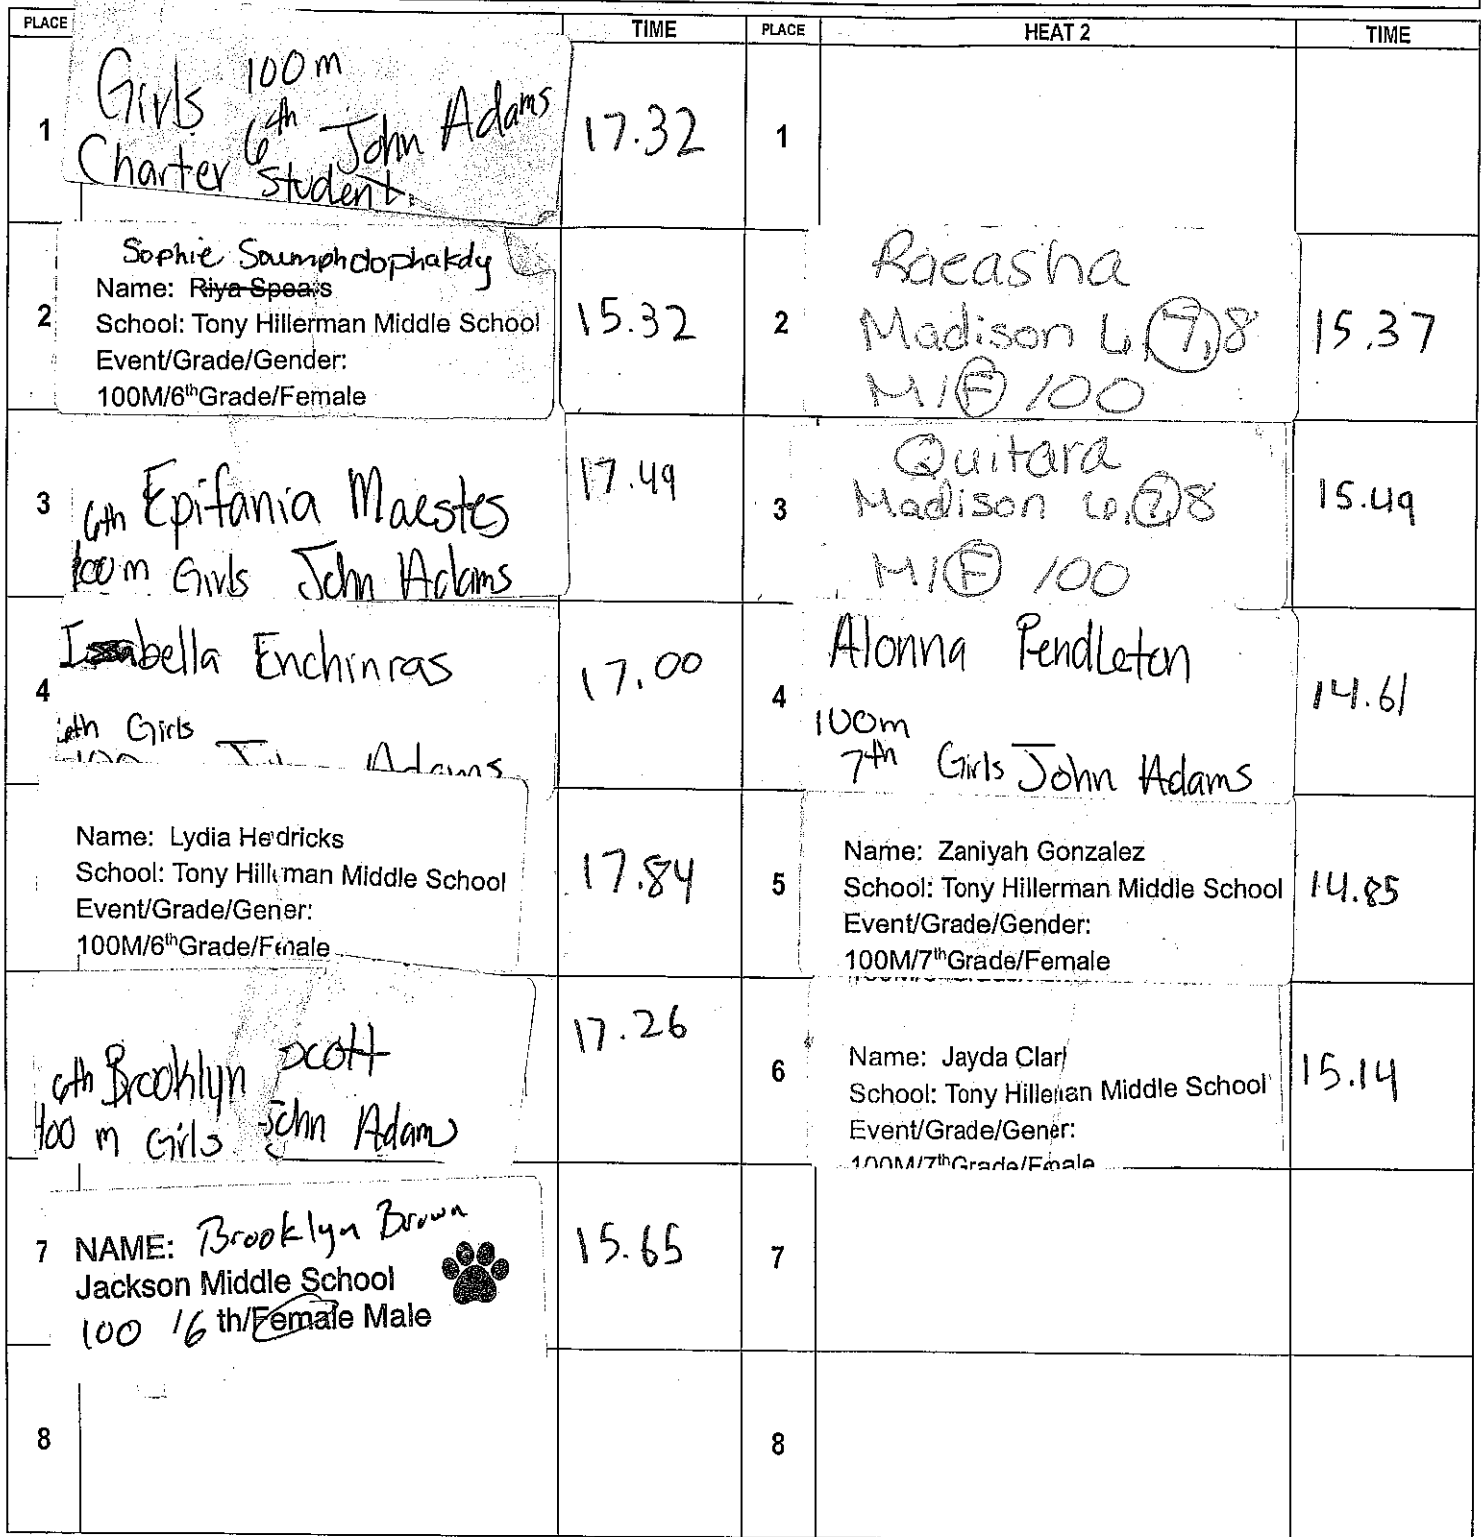 PLACE TIME PLACE HEAT 2 TIME
1
Girls 100m
6th John Adams
Charter Student
17.32
1
2
Sophie Soumphdophakdy
Name: Riya Spears
School: Tony Hillerman Middle School
Event/Grade/Gender:
100M/6thGrade/Female
15.32
2
Raeasha
Madison 6,7,8
M/F 100
15.37
3
6th Epifania Maestes
100m Girls John Adams
17.49
3
Quitara
Madison 6,7,8
M/F 100
15.49
4
Issabella Enchinras
6th Girls
100 John Adams
17.00
4
Alonna Pendleton
100m
7th Girls John Adams
14.61
Name: Lydia Hedricks
School: Tony Hillman Middle School
Event/Grade/Gener:
100M/6thGrade/Fmale
17.84
5
Name: Zaniyah Gonzalez
School: Tony Hillerman Middle School
Event/Grade/Gender:
100M/7thGrade/Female
14.85
6th Brooklyn Scott
100 m Girls John Adams
17.26
6
Name: Jayda Clar
School: Tony Hilleman Middle School
Event/Grade/Gener:
100M/7thGrade/Fmale
15.14
7
NAME: Brooklyn Brown
Jackson Middle School
100 /6 th/Female Male
15.65
7
8
8